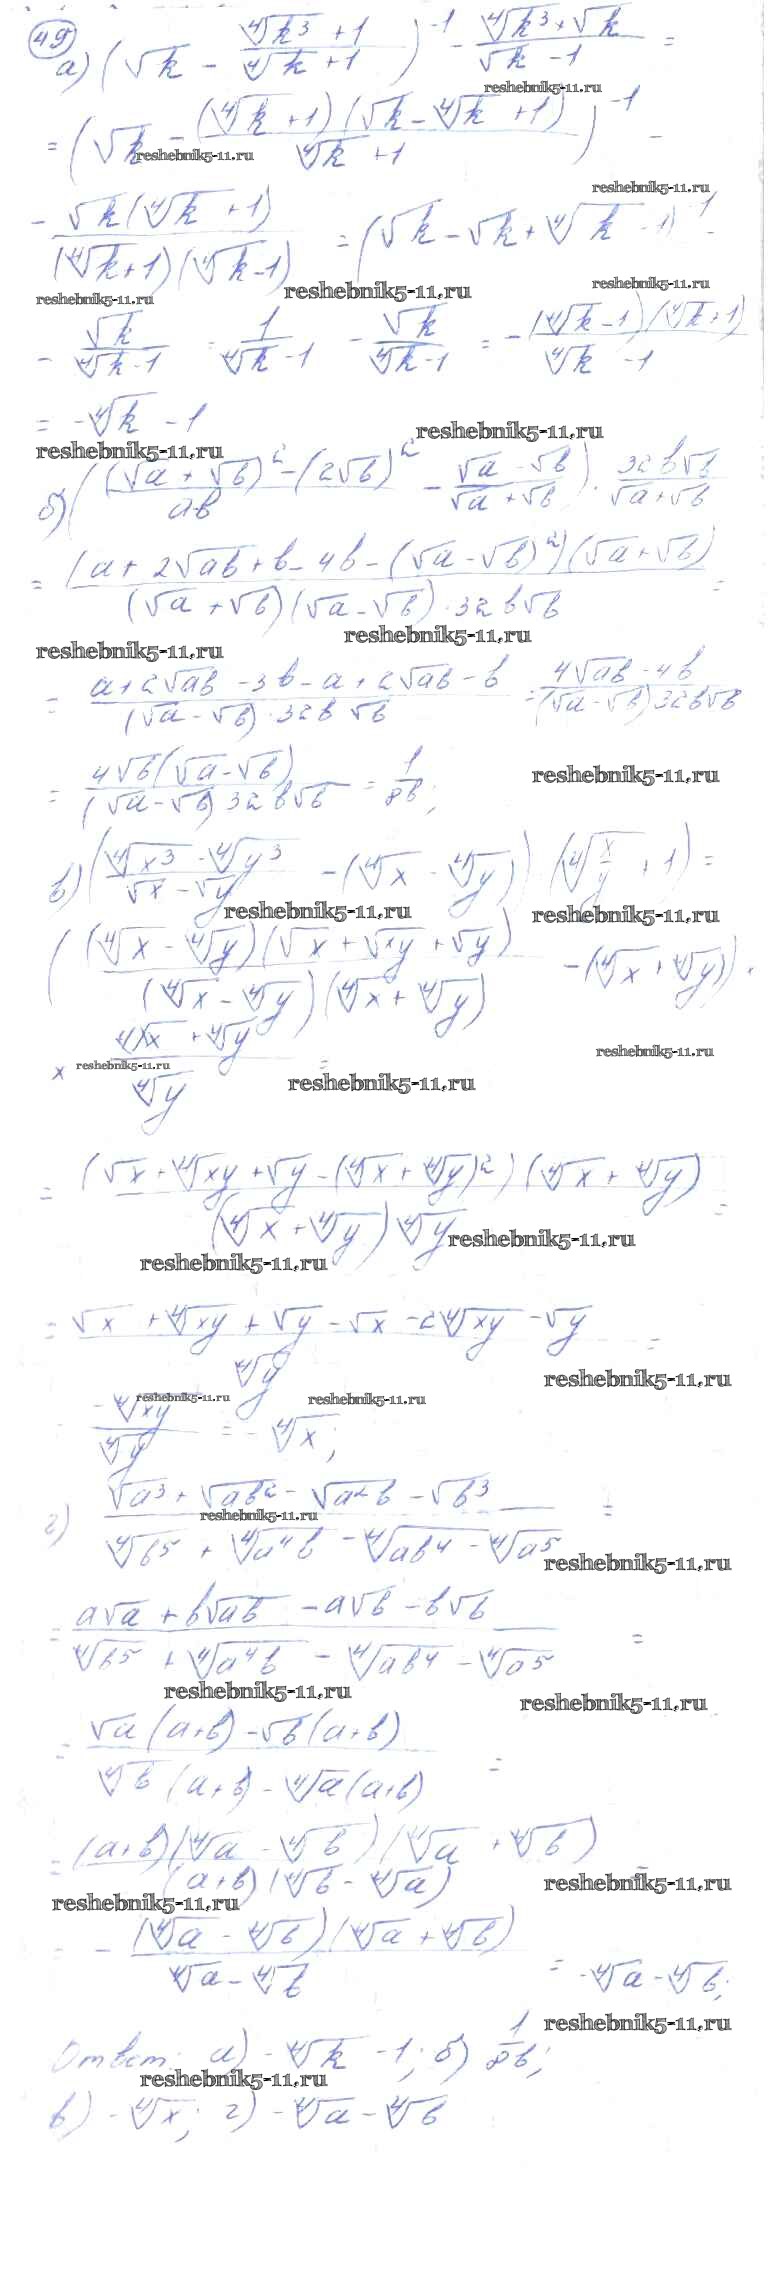 49
а) (√k - (⁴√k³ + 1)/(⁴√k + 1))⁻¹ - (⁴√k³ + √k)/(√k - 1) =
reshebnik5-11.ru
= (√k - (⁴√k + 1)(√k - ⁴√k + 1)/(⁴√k + 1))⁻¹ -
reshebnik5-11.ru
reshebnik5-11.ru
- √k(⁴√k + 1)/((⁴√k + 1)(⁴√k - 1)) = (√k - √k + ⁴√k - 1)⁻¹ -
reshebnik5-11.ru
reshebnik5-11.ru
reshebnik5-11.ru
- √k/(⁴√k - 1) = 1/(⁴√k - 1) - √k/(⁴√k - 1) = - (⁴√k - 1)(⁴√k + 1)/(⁴√k - 1)
= -⁴√k - 1
reshebnik5-11.ru
reshebnik5-11.ru
б) (((√a + √b)² - (2√b)²)/(ab) - (√a - √b)/(√a + √b)) · 32b√b/(√a + √b)
= (a + 2√ab + b - 4b - (√a - √b)²)(√a + √b)/((√a + √b)(√a - √b) · 32b√b) =
reshebnik5-11.ru
reshebnik5-11.ru
= (a + 2√ab - 3b - a + 2√ab - b)/((√a - √b) · 32b√b) = (4√ab - 4b)/((√a - √b)32b√b)
= 4√b(√a - √b)/((√a - √b)32b√b) = 1/8b;
reshebnik5-11.ru
в) ((⁴√x³ - ⁴√y³)/(√x - √y) - (⁴√x - ⁴√y)) (⁴√(x/y) + 1) =
reshebnik5-11.ru
reshebnik5-11.ru
((⁴√x - ⁴√y)(√x + √xy + √y)/((⁴√x - ⁴√y)(⁴√x + ⁴√y)) - (⁴√x + ⁴√y)) ·
x (⁴√x + ⁴√y)/⁴√y =
reshebnik5-11.ru
reshebnik5-11.ru
reshebnik5-11.ru
= (√x + ⁴√xy + √y - (⁴√x + ⁴√y)²)(⁴√x + ⁴√y)/((⁴√x + ⁴√y)⁴√y) =
reshebnik5-11.ru
reshebnik5-11.ru
= (√x + ⁴√xy + √y - √x - 2⁴√xy - √y)/⁴√y =
reshebnik5-11.ru
reshebnik5-11.ru
reshebnik5-11.ru
-⁴√xy/⁴√y = -⁴√x;
г) (√a³ + √ab² - √a²b - √b³)/(⁴√b⁵ + ⁴√a⁴b - ⁴√ab⁴ - ⁴√a⁵) =
reshebnik5-11.ru
reshebnik5-11.ru
= (a√a + b√ab - a√b - b√b)/(⁴√b⁵ + ⁴√a⁴b - ⁴√ab⁴ - ⁴√a⁵) =
reshebnik5-11.ru
reshebnik5-11.ru
= (√a(a+b) - √b(a+b))/(⁴√b(a+b) - ⁴√a(a+b)) =
= (a+b)(⁴√a - ⁴√b)(⁴√a + ⁴√b)/((a+b)(⁴√b - ⁴√a)) =
reshebnik5-11.ru
reshebnik5-11.ru
= - (⁴√a - ⁴√b)(⁴√a + ⁴√b)/(⁴√a - ⁴√b) = -⁴√a - ⁴√b;
reshebnik5-11.ru
Ответ: а) -⁴√k - 1; б) 1/8b;
reshebnik5-11.ru
в) -⁴√x; г) -⁴√a - ⁴√b
reshebnik5-11.ru